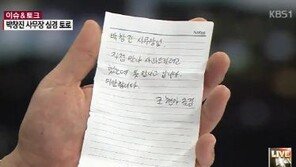 이슈&토크
박창진 사무장 심경 토로
KBS1
박창진 사무장님
직접 만나 사과드리려고
했는데 못 만나고 갑니다
미안합니다
조현아 올림
LIVE